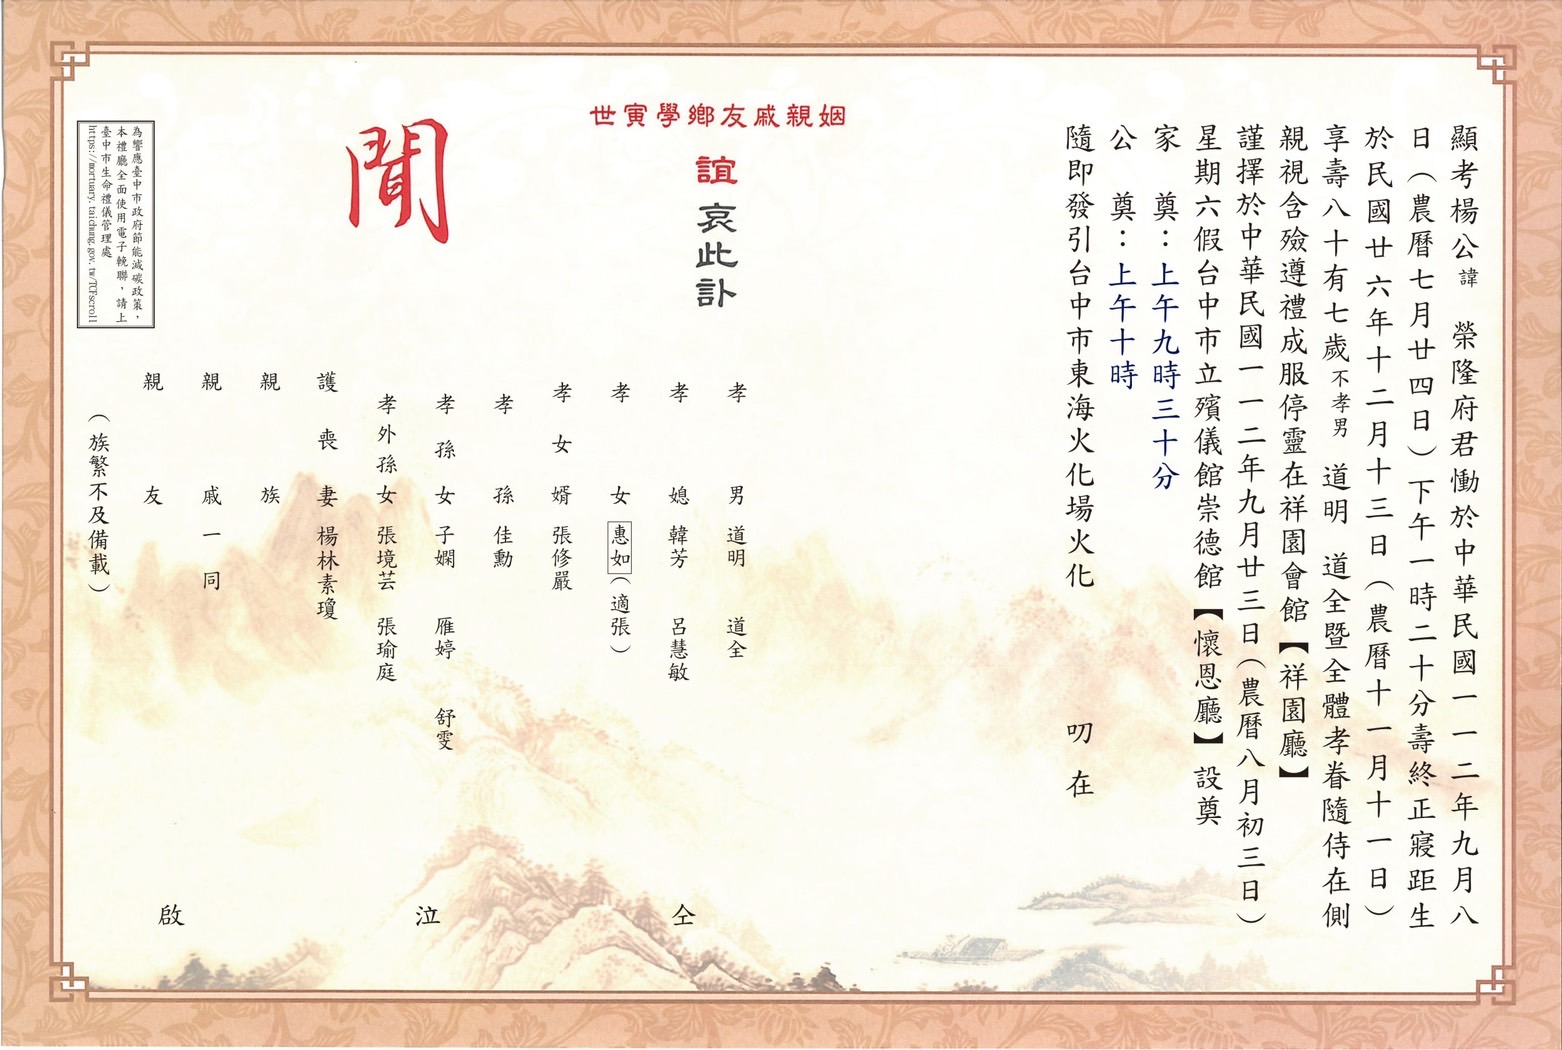 顯考楊公諱 榮隆府君慟於中華民國一一二年九月八
日(農曆七月廿四日)下午一時二十分壽終正寢距生
於民國廿六年十二月十三日(農曆十一月十一日)
享壽八十有七歲不孝男 道明 道全暨全體孝眷隨侍在側
親視含殮遵禮成服停靈在祥園會館【祥園廳】
謹擇於中華民國一一二年九月廿三日(農曆八月初三日)
星期六假台中市立殯儀館崇德館【懷恩廳】設奠
家 奠：上午九時三十分
公 奠：上午十時
隨即發引台中市東海火化場火化 叨 在
世寅學鄉友戚親姻
誼哀此訃
聞
孝 男 道明 道全
孝 媳 韓芳 呂慧敏
孝 女 惠如(適張)
孝 女 婿 張修嚴
孝 孫 佳勳
孝 孫 女 子嫻 雁婷 舒雯
孝外孫女 張境芸 張瑜庭
護 喪 妻 楊林素瓊
親 族
親 戚 一 同
親 友
(族繁不及備載)
仝 泣 啟
為響應臺中市政府節能減碳政策，
本禮廳全面使用電子輓聯，請上
臺中市生命禮儀管理處
https://mortuary.taichung.gov.tw/TCFscroll